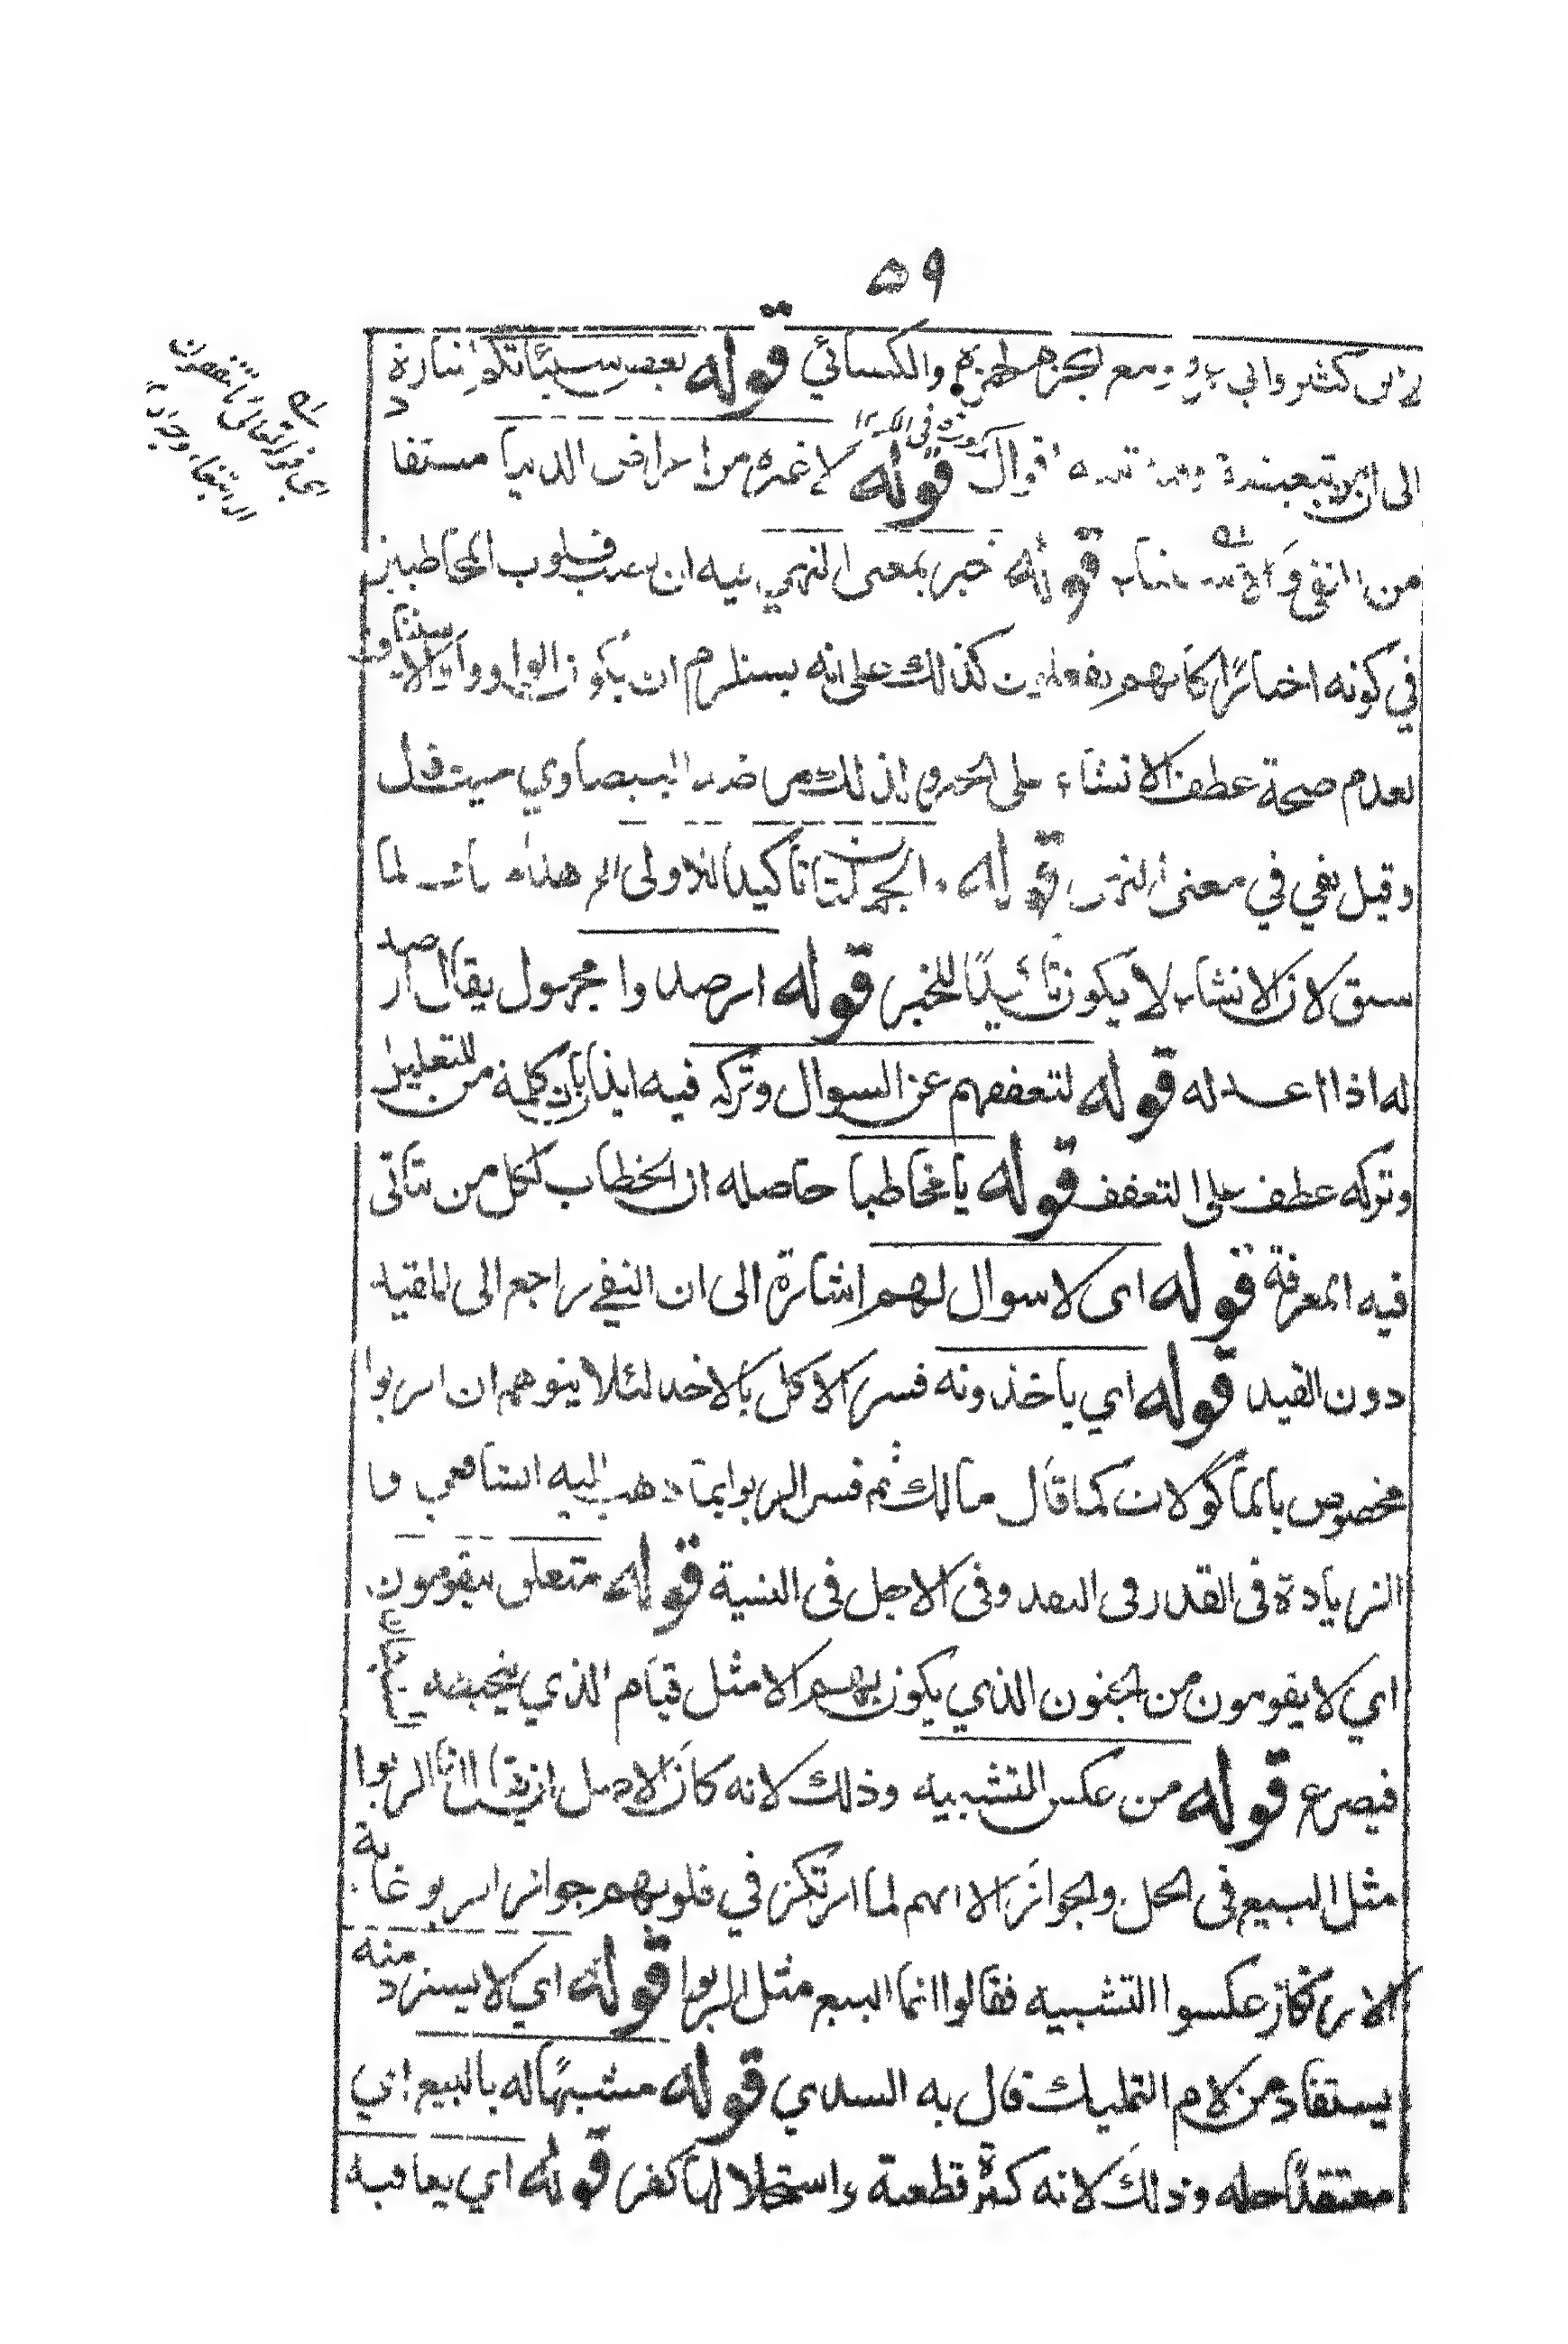 ٥٩
لابن كثير وابي ومع الجزم لحمزة والكسائي قوله بعض سيئاتكم اشارة
الى ان من تبعيضية اقوال قوله لا غيره من اعراض الدنيا مستفاد
من النفي والاستثناء قوله خبر بمعنى النهي فيه ان قلوب المخاطبين
في كونه اخبارا كانهم يفعلون كذلك على انه يستلزم ان يكون الواو واو الاستيناف
لعدم صحة عطف الانشاء على الخبر ولذلك البيضاوي حيث قال
وقيل نفي في معنى النهي قوله والجملتان تاكيد للاولى هذا لما
سبق لان الانشاء لا يكون تاكيدا للخبر قوله ارصدوا مجهول يقال ارصد
له اذا اعد له قوله لتعففهم عن السوال وتركه فيه ايذان بان كلمة من للتعليل
وتركه عطف على التعفف قوله يا مخاطبا حاصله ان الخطاب لكل من يتاتى
فيه المعرفة قوله اى لا سوال لهم اشارة الى ان النفي راجع الى المقيد
دون القيد قوله اي ياخذونه فسر الاكل بالاخذ لئلا يتوهم ان الربوا
مخصوص بالمأكولات كما قال مالك ثم فسر الربوا بما ذهب اليه الشافعي
الزيادة فى القدر وفى الاجل فى النسية قوله متعلق بيقومون
اي لا يقومون من الجنون الذي يكون بهم الا مثل قيام الذي يتخبطه
فيصرع قوله من عكس التشبيه وذلك لانه كان الاصل ان يقال انما الربوا
مثل البيع فى الحل والجواز الا انهم لما ارتكز في قلوبهم جواز الربو غاية
الارتكاز عكسوا التشبيه فقالوا انما البيع مثل الربوا قوله اي لا يسترد منه
يستفاد من لام التمليك قال به السدي قوله مشبها له بالبيع اي
معتقدا حله وذلك لانه كفر قطعية واستحلالها كفر قوله اي يعاقبه